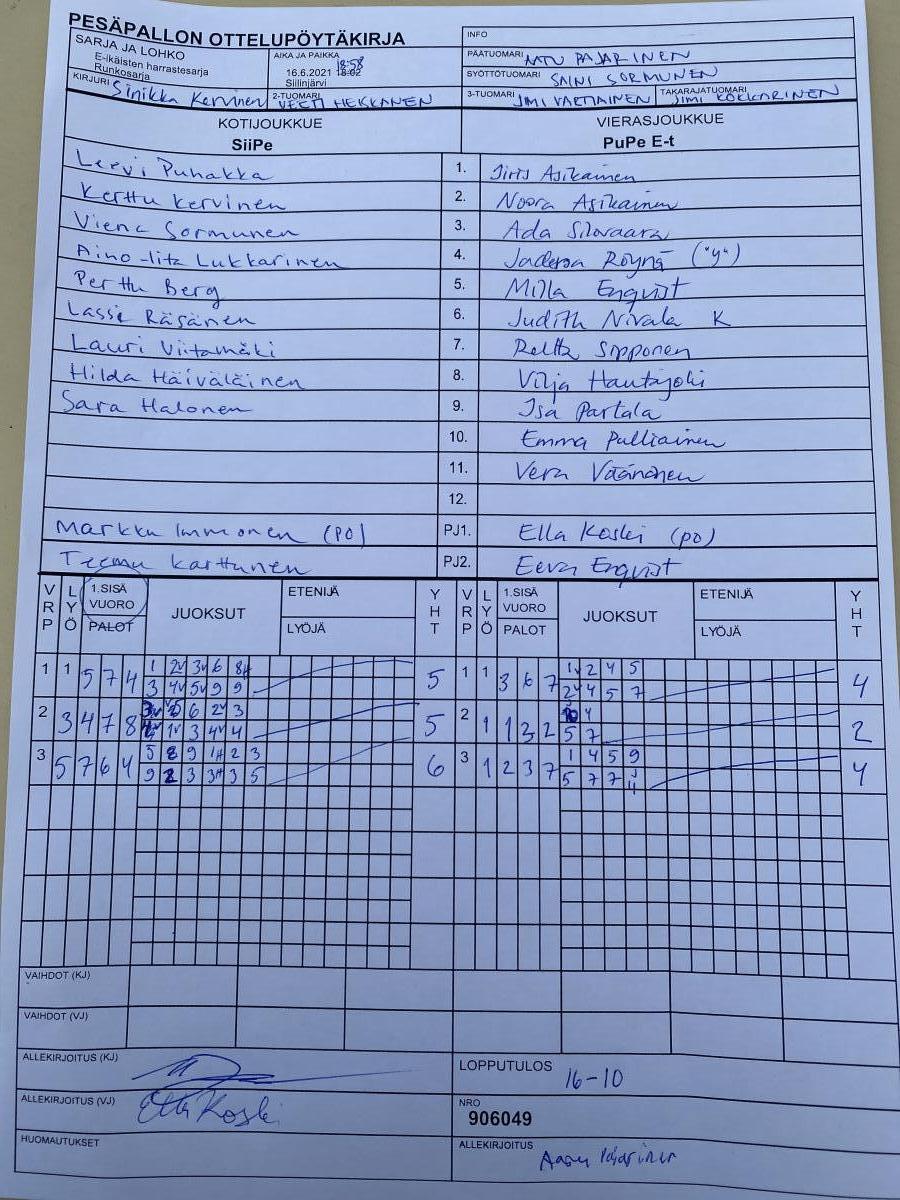 PESÄPALLON OTTELUPÖYTÄKIRJA
INFO
SARJA JA LOHKO
E-ikäisten harrastesarja
Runkosarja
AIKA JA PAIKKA
18:58
16.6.2021 18:02
Siilinjärvi
PÄÄTUOMARI PAJARINEN
SYÖTTÖTUOMARI SAINI SORMUNEN
KIRJURI Sinikka Kervinen
2-TUOMARI VEETI HEISKANEN
3-TUOMARI JIMI VARTIAINEN
TAKARAJATUOMARI JIMI KOKKARINEN
KOTIJOUKKUE
SiiPe
VIERASJOUKKUE
PuPe E-t
Leevi Puhakka 1. Iiris Asikainen
Kerttu Kervinen 2. Noora Asikainen
Viena Sormunen 3. Ada Silovaara
Aino-Iita Lukkarinen 4. Röynä ("y")
Perttu Berg 5. Milla Enqvist
Lassi Räsänen 6. Judith Nivala K
Lauri Viitamäki 7. Sipponen
Hilda Häiväläinen 8. Vilja Hautajoki
Sara Halonen 9. Isa Partala
10. Emma Pulliainen
11. Vera Väänänen
12.
Markku Immonen (PO) PJ1. Ella Koski (po)
Teemu Karttunen PJ2. Eeva Enqvist
VRP LYÖ 1.SISÄ VUORO PALOT JUOKSUT ETENIJÄ LYÖJÄ YHT VRP LYÖ 1.SISÄ VUORO PALOT JUOKSUT ETENIJÄ LYÖJÄ YHT
1 1 5 7 4 1 2v 3v 6 8 5 1 1 3 6 7 1v 2 4 5 4
3 4v 5v 9 9 2v 4 5 7
2 3 4 7 8 6 2v 3 5 2 1 1 3 2 4 2
1v 3 4v 4 5 7
3 5 7 6 4 5 8 9 1 2 3 6 3 1 2 3 7 1 4 5 9 4
9 2 3 3 3 5 5 7 7
VAIHDOT (KJ)
VAIHDOT (VJ)
ALLEKIRJOITUS (KJ)
LOPPUTULOS 16-10
ALLEKIRJOITUS (VJ) Ella Koski
NRO
906049
HUOMAUTUKSET
ALLEKIRJOITUS Pajarinen